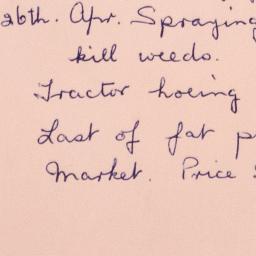 26th. Apr. Spraying
kill weeds.
Tractor hoeing
Last of fat p
Market. Price